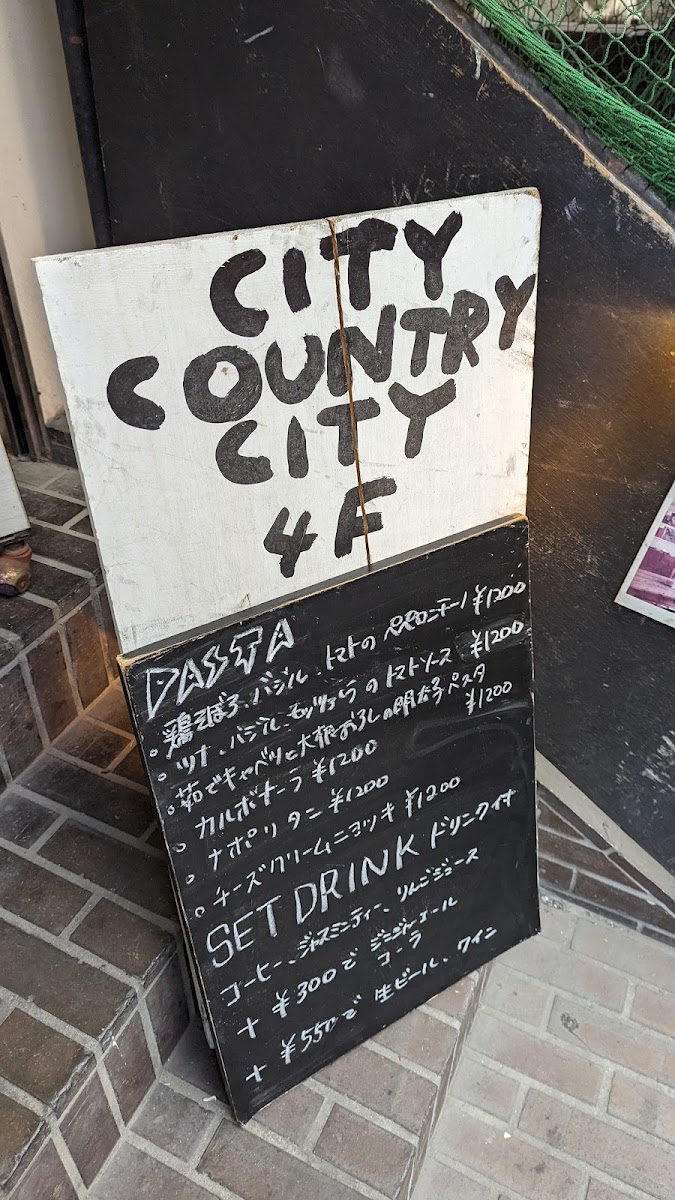 CITY
COUNTRY
CITY
4F
PASTA
。鶏そぼろ、バジル、トマトの ペペロンチーノ ¥1200
。ツナ、バジル、モッツァレラのトマトソース ¥1200
。茹でキャベツと大根おろしの明太子パスタ ¥1200
。カルボナーラ ¥1200
。ナポリタン ¥1200
。チーズクリームニョッキ ¥1200
SET DRINK ドリンク付
コーヒー、ジャスミンティー、りんごジュース
+ ¥300で ジンジャーエール
コーラ
+ ¥550で 生ビール、ワイン